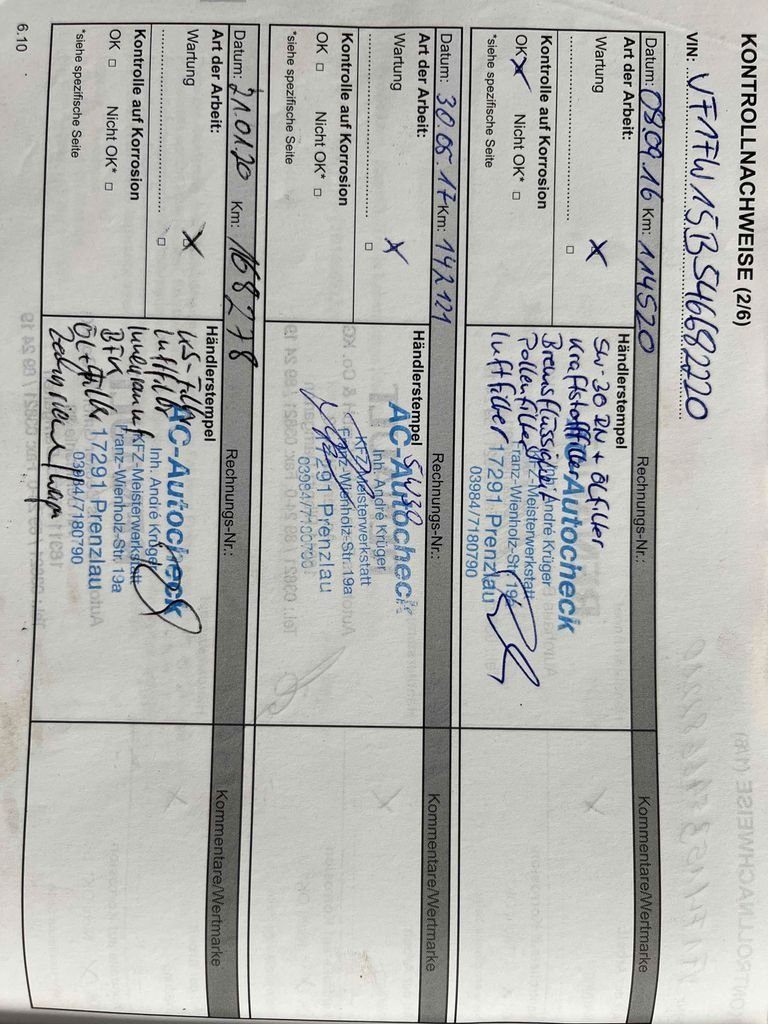 KONTROLLNACHWEISE (2/6)
VIN: VF1FW15B546682220
Datum: 09.09.16 Km: 114520 Rechnungs-Nr.: Kommentare/Wertmarke
Art der Arbeit: Händlerstempel
Wartung
Kontrolle auf Korrosion
OK Nicht OK*
*siehe spezifische Seite
5w-30 RN + Ölfilter
Kraftstofffilter
Bremsflüssigkeit
Pollenfilter
Luftfilter
Autocheck
Inh. André Krüger
KFZ-Meisterwerkstatt
Franz-Wienholz-Str. 19a
17291 Prenzlau
03984/7180790
Datum: 30.05.17 Km: 142121 Rechnungs-Nr.: Kommentare/Wertmarke
Art der Arbeit: Händlerstempel
Wartung
Kontrolle auf Korrosion
OK Nicht OK*
*siehe spezifische Seite
5W30
AC-Autocheck
Inh. André Krüger
KFZ-Meisterwerkstatt
Franz-Wienholz-Str. 19a
17291 Prenzlau
03984/7180790
Datum: 21.01.20 Km: 168278 Rechnungs-Nr.: Kommentare/Wertmarke
Art der Arbeit: Händlerstempel
Wartung
Kontrolle auf Korrosion
OK Nicht OK*
*siehe spezifische Seite
KS-Filter
Luftfilter
Innenraumf
BFK
Öl + Filter
Zahnriemen
AC-Autocheck
Inh. André Krüger
KFZ-Meisterwerkstatt
Franz-Wienholz-Str. 19a
17291 Prenzlau
03984/7180790
6.10